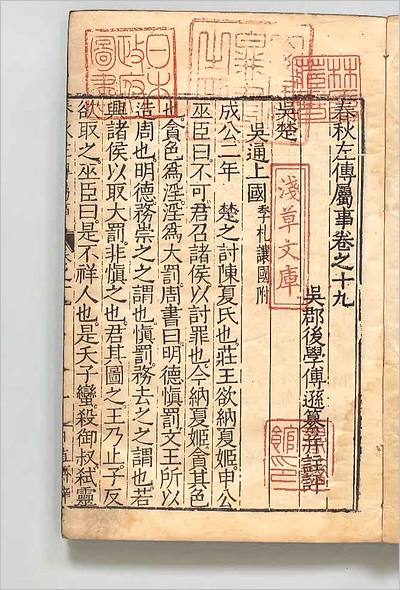 春秋左傳屬事卷之十九
吳郡後學傅遜纂并註評
吳楚
吳通上國 季札讓國附
成公二年 楚之討陳夏氏也莊王欲納夏姬申公
巫臣曰不可君召諸侯以討罪也今納夏姬貪其色
也貪色爲淫淫爲大罰周書曰明德慎罰文王所以
造周也明德務崇之之謂也慎罰務去之之謂也若
興諸侯以取大罰非慎之也君其圖之王乃止子反
欲取之巫臣曰是不祥人也是夭子蠻殺御叔弑靈
淺草文庫
日本
政府
圖書